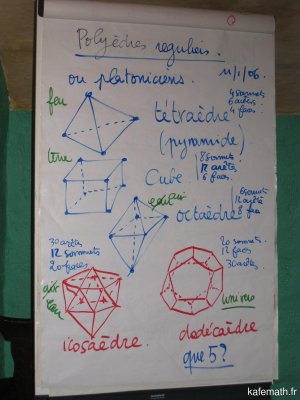 Polyèdres réguliers.
ou platoniciens.
11/1/06.
feu
tétraèdre
(pyramide)
4 sommets
6 arêtes
4 faces.
terre
Cube
8 sommets
12 arêtes
6 faces.
octaèdre
6 sommets
12 arêtes
8 faces
30 arêtes
12 sommets
20 faces
eau
icosaèdre
20 sommets.
12 faces
30 arêtes.
univers
dodécaèdre
que 5?
kafemath.fr